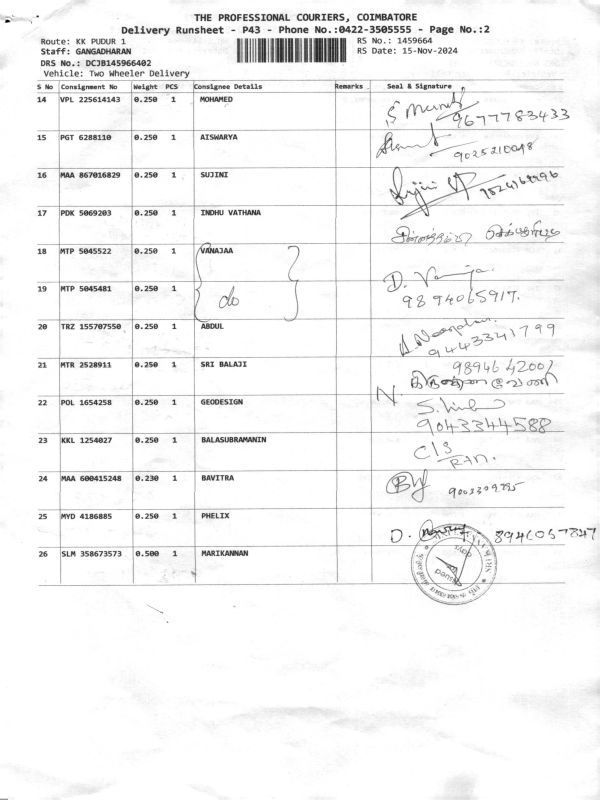 THE PROFESSIONAL COURIERS, COIMBATORE
Delivery Runsheet - P43 - Phone No.:0422-3505555 - Page No.:2
Route: KK PUDUR 1 RS No.: 1459664
Staff: GANGADHARAN RS Date: 15-Nov-2024
DRS No.: DCJB145966402
Vehicle: Two Wheeler Delivery
S No Consignment No Weight PCS Consignee Details Remarks Seal & Signature
14 VPL 225614143 0.250 1 MOHAMED
9677783433
15 PGT 6288110 0.250 1 AISWARYA
16 MAA 867016829 0.250 1 SUJINI
17 PDK 5069203 0.250 1 INDHU VATHANA
18 MTP 5045522 0.250 1 VANAJAA
D.
19 MTP 5045481 0.250 1 do
9894065917.
20 TRZ 155707550 0.250 1 ABDUL
9443341799
21 MTR 2528911 0.250 1 SRI BALAJI
9894642001
N.
22 POL 1654258 0.250 1 GEODESIGN
9043344588
23 KKL 1254027 0.250 1 BALASUBRAMANIN
C/S
24 MAA 600415248 0.230 1 BAVITRA
25 MYD 4186885 0.250 1 PHELIX
D. 8946057847
26 SLM 358673573 0.500 1 MARIKANNAN